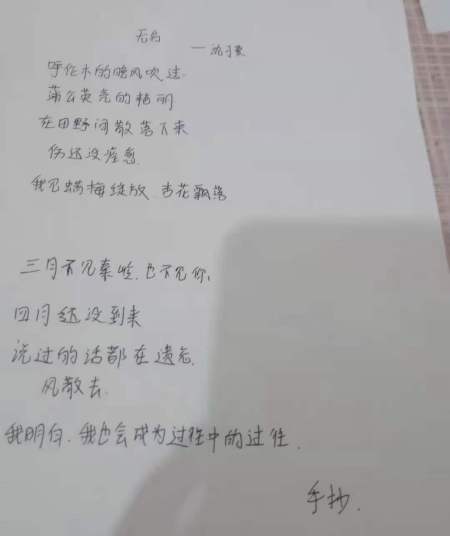 无名
呼伦木的晚风吹过
蒲公英壳的精明
在田野间散落下来
伤还没痊愈
我见腊梅绽放 杏花飘落
三月不见秦岭,也不见你,
四月还没到来
说过的话都在遗忘,
风散去
我明白,我也会成为过程中的过往.
手抄.